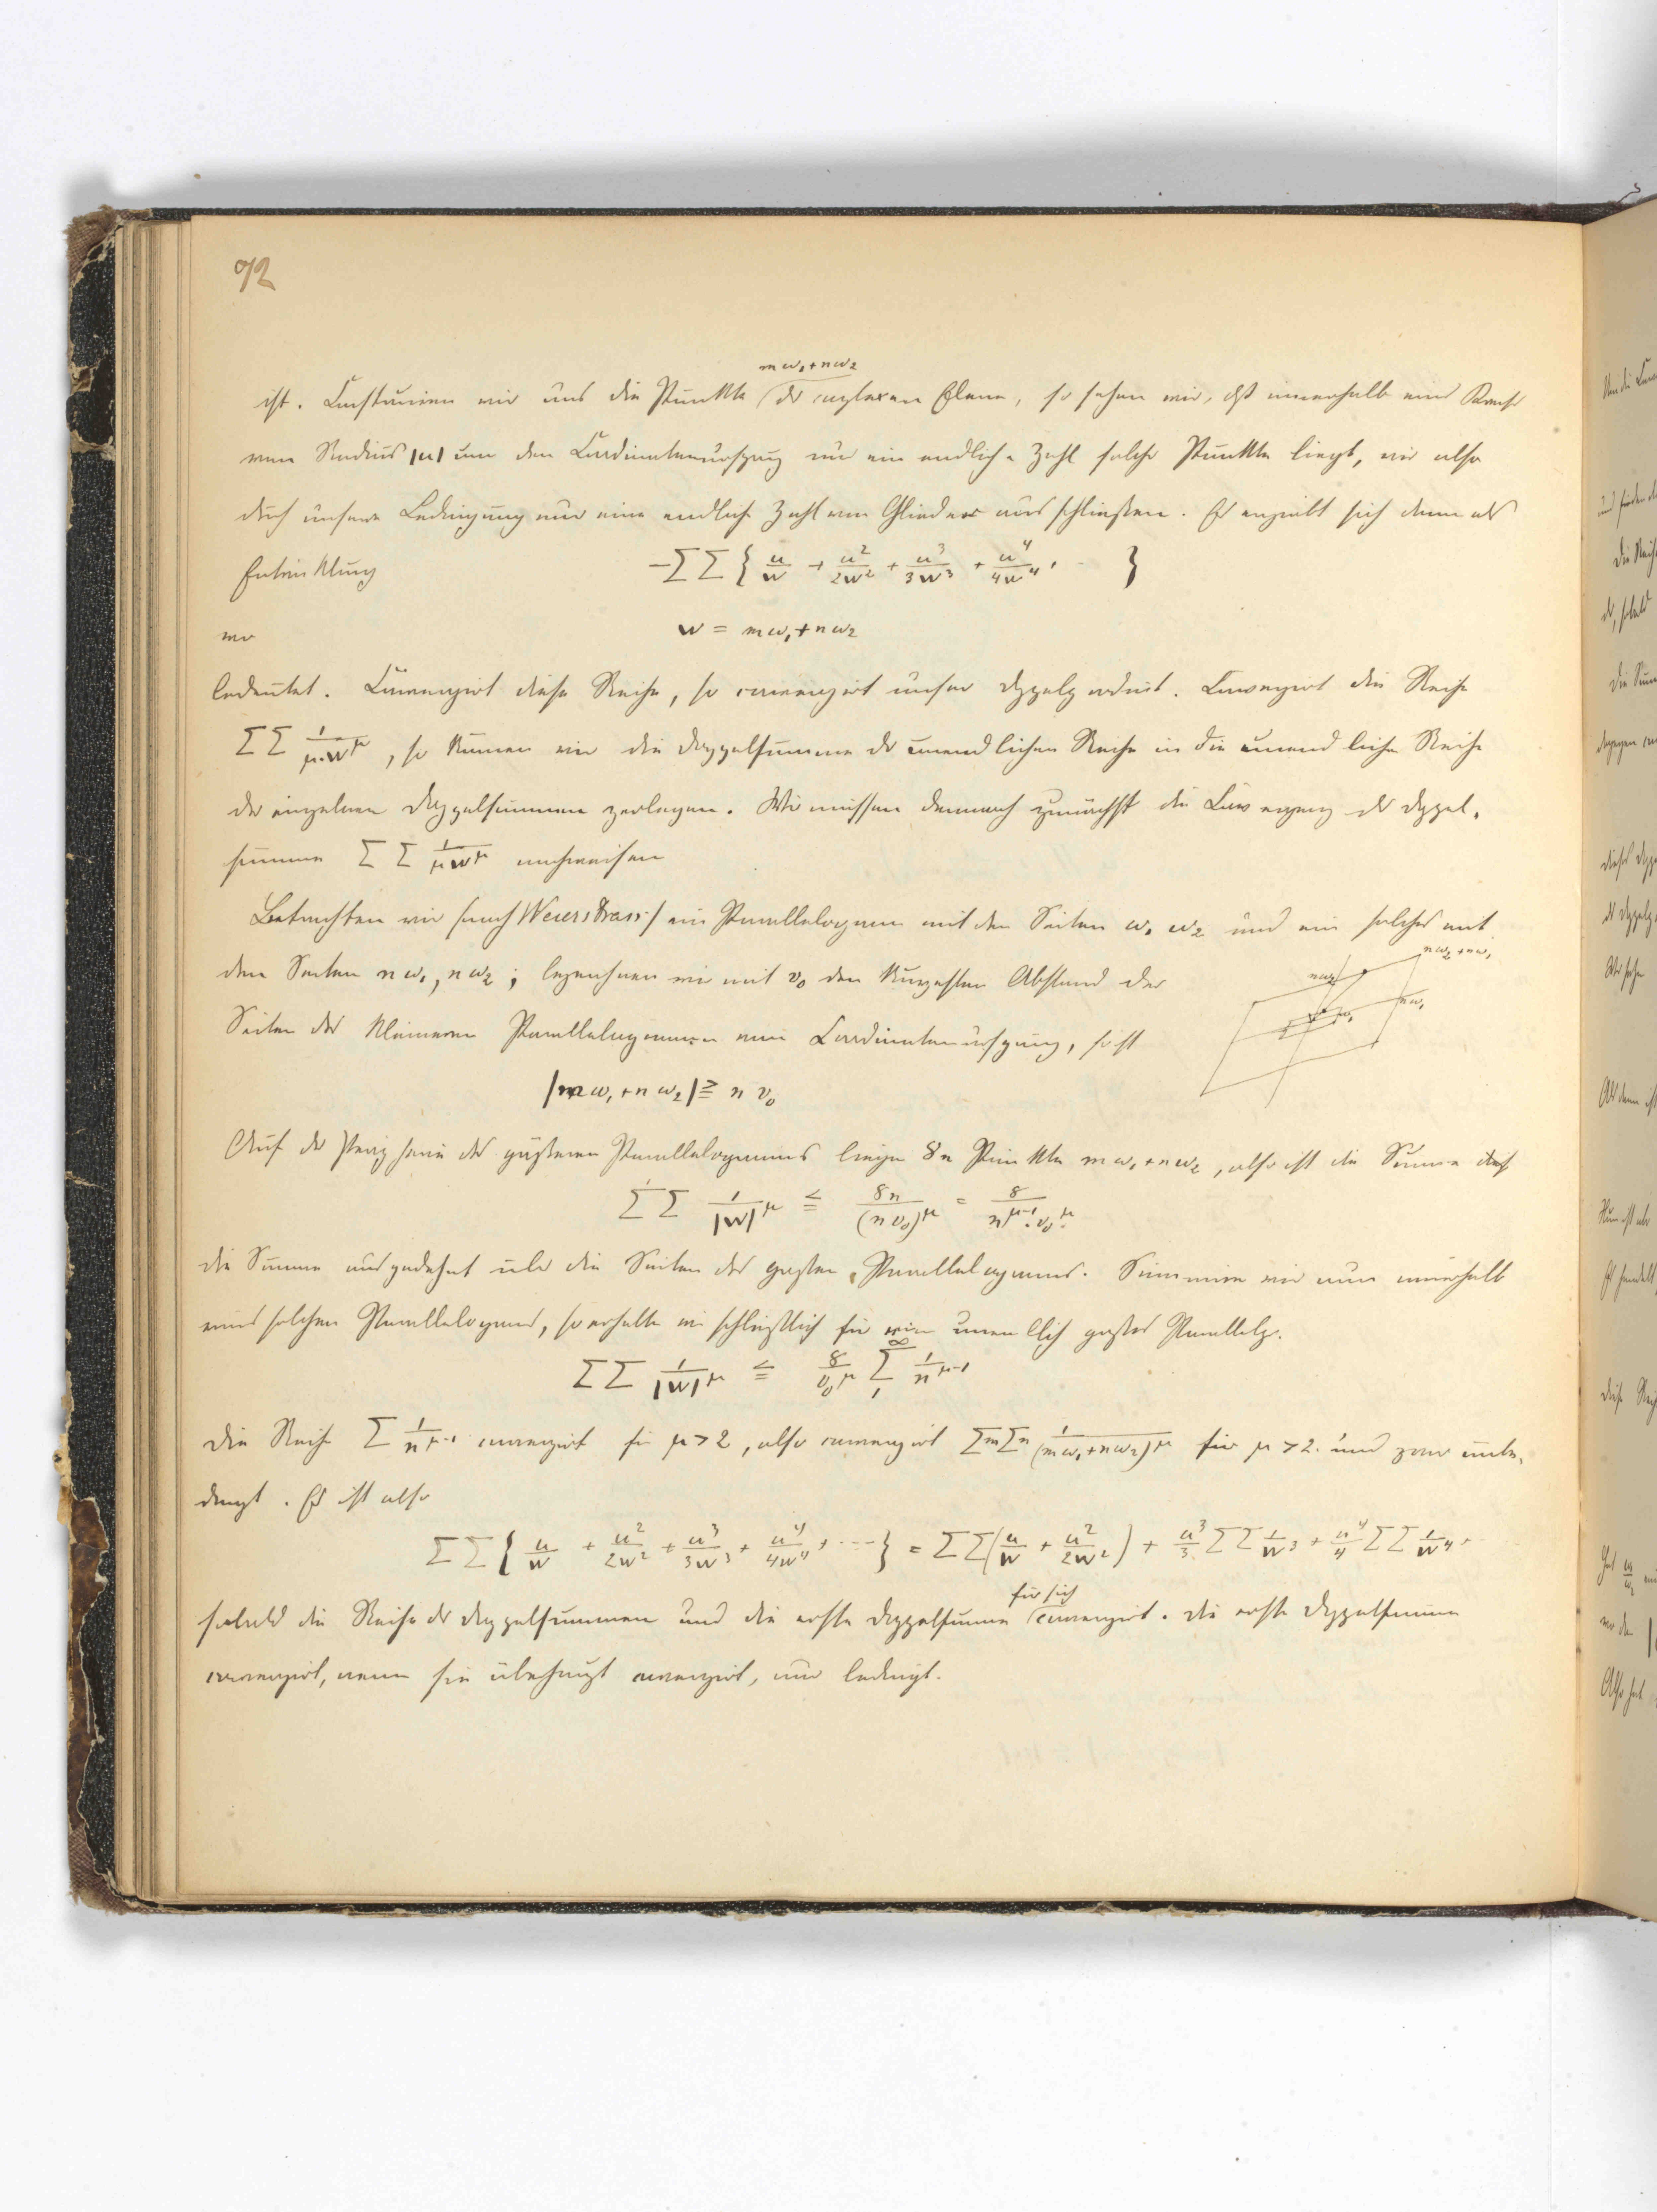 92
mω₁+nω₂
ist. Construiren wir uns die Punkte der complexen Ebene, so sehen wir, daß innerhalb eines Kreises
vom Radius |u| um den Coordinatenursprung nur eine endliche Zahl solcher Punkte liegt, wir also
durch unsere Bedingung nur eine endliche Zahl von Gliedern ausschließen. Es ergiebt sich dann als
Entwicklung −ΣΣ{u/w + u²/2w² + u³/3w³ + u⁴/4w⁴ + ⋯ }
wo w = mω₁+nω₂
bedeutet. Convergirt diese Reihe, so convergirt unser Doppelproduct. Convergirt die Reihe
ΣΣ 1/μ·w^μ, so können wir die Doppelsumme der unendlichen Reihe in die unendliche Reihe
der einzelnen Doppelsummen zerlegen. Wir müssen demnach zunächst die Convergenz der Doppel-
summe ΣΣ 1/μw^μ nachweisen
Betrachten wir (nach Weierstrass) ein Parallelogramm mit den Seiten ω₁ ω₂ und ein solches mit
den Seiten nω₁, nω₂; bezeichnen wir mit v₀ den kürzesten Abstand der
Seiten des kleineren Parallelogramms vom Coordinatenursprung, so ist
nω₂+nω₁
nω₂
nω₁
ω₁
|mω₁+nω₂| ≧ n v₀
Auf der Peripherie des größeren Parallelogramms liegen 8n Punkte mω₁+nω₂, also ist die Summe
Σ'Σ 1/|w|^μ ≦ 8n/(nv₀)^μ = 8/n^(μ−1)·v₀^μ
die Summe ausgedehnt über die Seiten des großen Parallelogramms. Summiren wir nun innerhalb
eines solchen Parallelogramms, so erhalten wir schließlich für ein unendlich großes Parallelg.
ΣΣ 1/|w|^μ ≦ 8/v₀^μ Σ₁^∞ 1/n^(μ−1)
Die Reihe Σ 1/n^(μ−1) convergirt für μ>2, also convergirt Σm Σn 1/(mω₁+nω₂)^μ für μ>2 und zwar unbe-
dingt. Es ist also
ΣΣ{u/w + u²/2w² + u³/3w³ + u⁴/4w⁴ + ⋯} = ΣΣ(u/w + u²/2w²) + u³/3 ΣΣ 1/w³ + u⁴/4 ΣΣ 1/w⁴ + ⋯
für sich
sobald die Reihe der Doppelsummen und die erste Doppelsumme convergirt. Die erste Doppelsumme
convergirt, wenn sie überhaupt convergirt, nur bedingt.